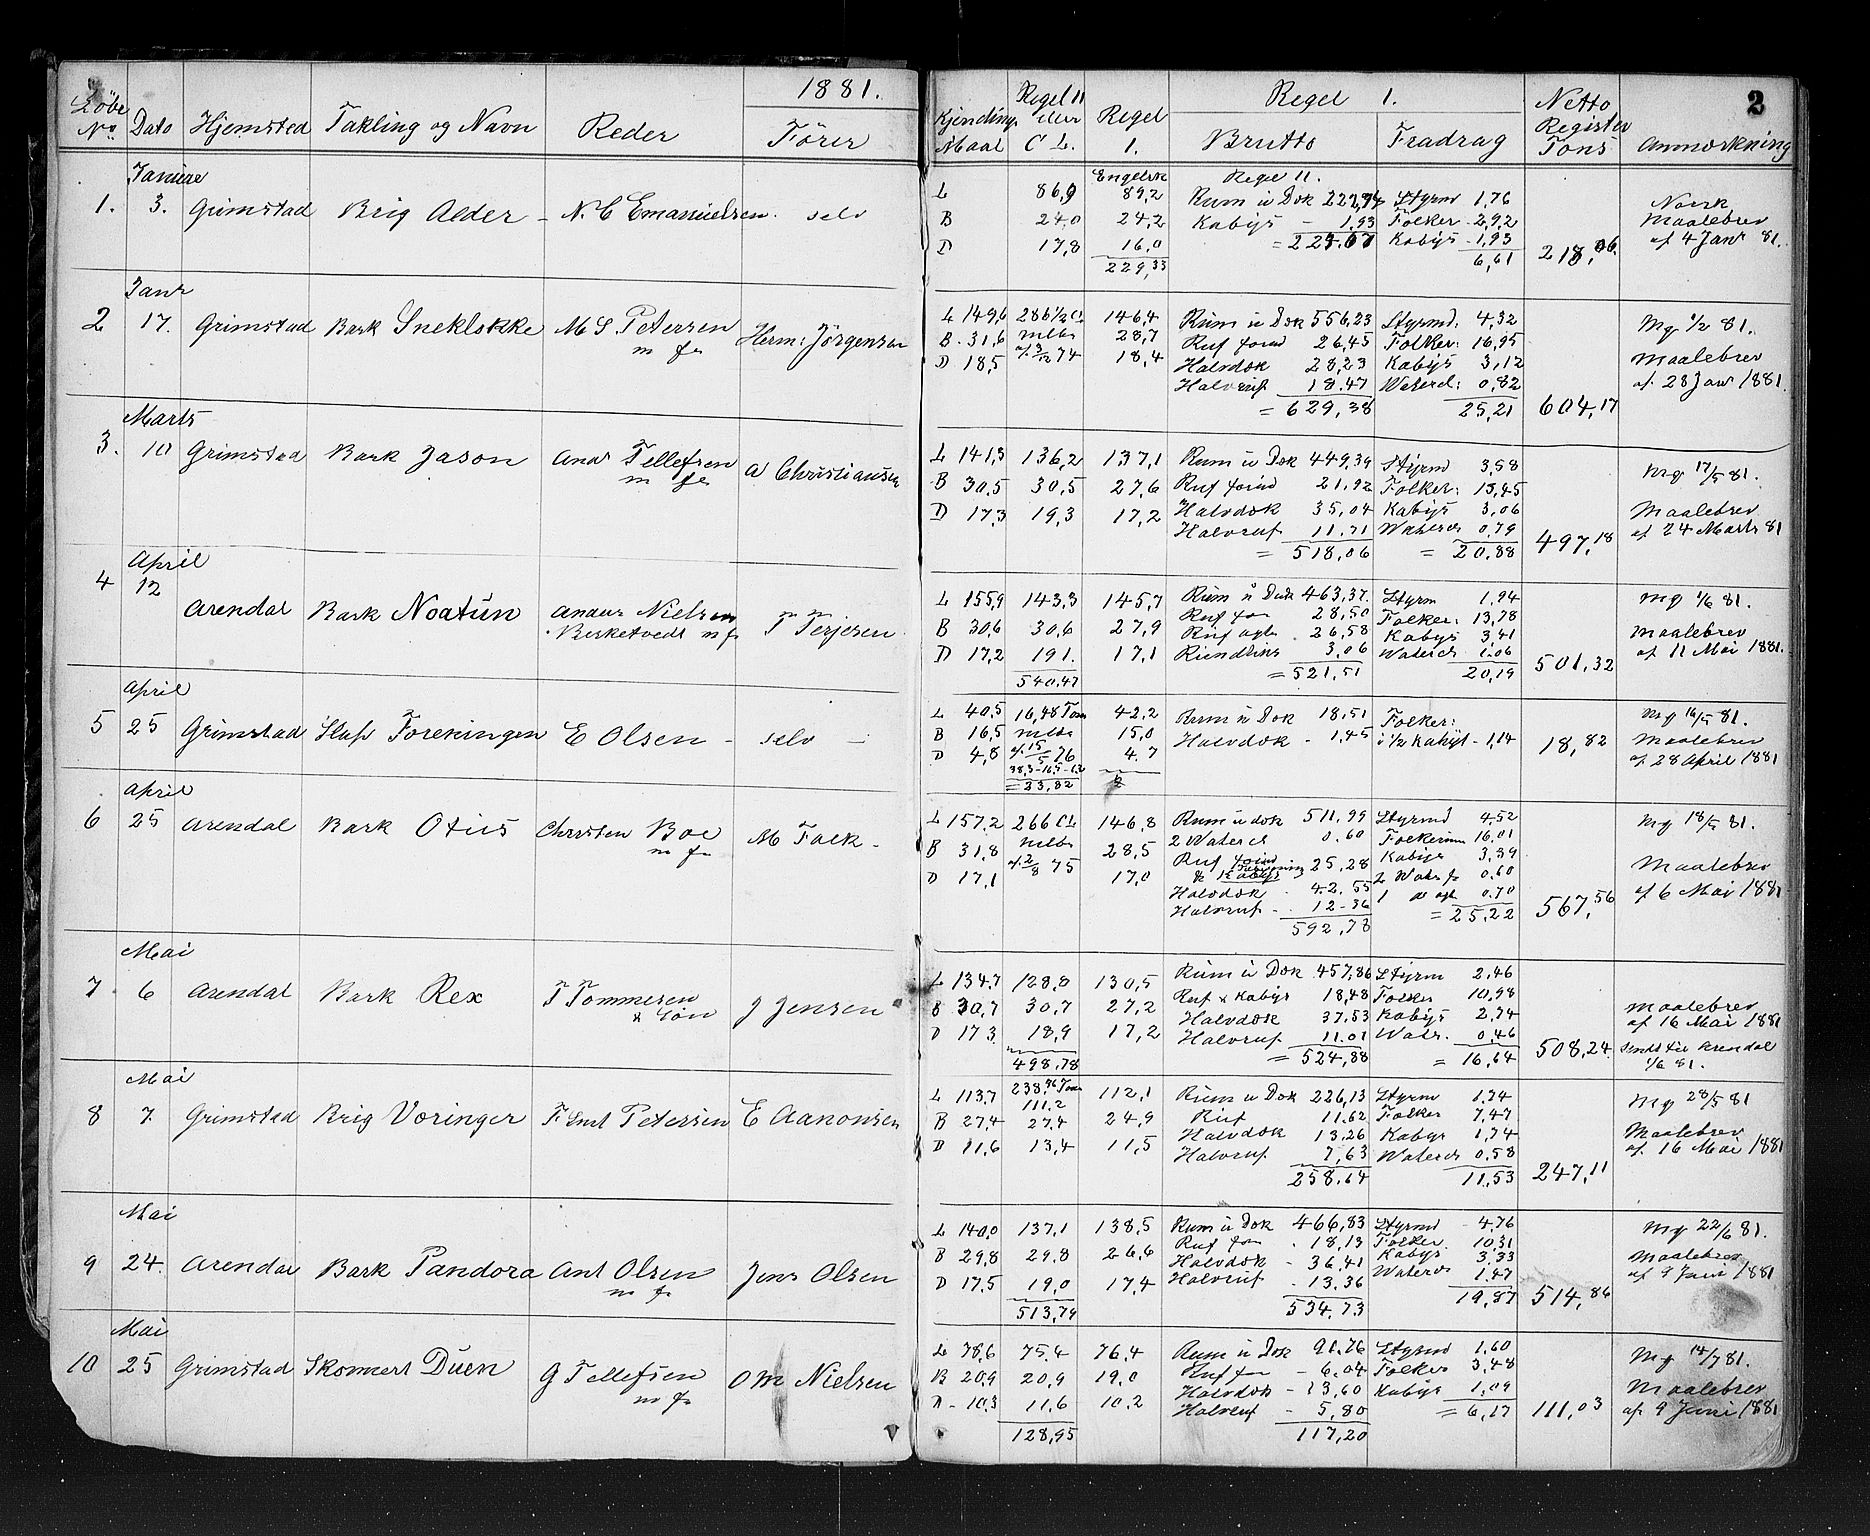 1881.
Löbe No. Dato Hjemsted Takling og Navn Reder Förer
Januar
1. 3. Grimstad Brig Alder - N. C Emanuelsen. selv
Janr
2 17. Grimstad Bark Sneklokke M S. Petersen m fr Herm: Jörgensen
Marts
3. 10 Grimstad Bark Jason And Tellefsen m fr A Christiansen
April
4 12 Arendal Bark Noatun Anaur Nielsen Berketvedt m fr T Terjesen
April
5 25 Grimstad Slup Foreningen E Olsen - selv -
April
6 25 Arendal Bark Otius Christen Boe m fr M Falk -
Mai
7 6 Arendal Bark Rex T Tommesen & Sön J Jensen
Mai
8 7. Grimstad Brig Væringer F Smt Petersen E Aanonsen
Mai
9 24. Arendal Bark Pandora Ant Olsen m fr Jens Olsen
Mai
10 25 Grimstad Skonnert Duen G Tellefsen m fr O M Nielsen
2
Kjendings Maal Regel II eller C L. Regel 1. Regel 1. Brutto Fradrag Netto Register Tons Anmærkning
Engelsk Regel II.
L 86,9 89,2 Rum u Dok 227,74 Styrm 1,76 Norsk
B 24,0 24,2 Kabys - 1,93 Folker - 2,92 Maalebrev
D 17,8 16,0 = 229.67 Kabys - 1,93 af 4 Janr 81.
229,33 6,61 218,06.
L 149,6 286 1/2 CL 146,4 Rum u Dok 556,23 Styrmd. 4,32 Mg 1/2 81.
B. 31,6 28,7 Ruf forud 26,45 Folker: 16,95
D 18,5 74 18,4 Halvdæk 28,23 Kabys 3,12 Maalebrev
Halvruf 18.47 Watercl: 0,82 af. 28 Jan 1881.
= 629,38 25,21 604,17
L 141,3 136,2 137,1 Rum u Dok 449,39 Styrmd 3,58 Mg 17/5 81.
B 30,5 30,5 27,6 Ruf forud 21,92 Folker: 13,45
D 17,3 19,3 17,2 Halvdæk 35,04 Kabys 3,06 Maalebrev
Halvruf 11.71 Watercl 0,79 af 24 Marts 81
= 518,06 = 20,88 497,18
L 155,9 143,3 145,7 Rum u Dæk 463,37. Styrm 1,94 Mg 1/6 81.
B 30,6 30,6 27,9 Ruf for 28,50 Folker: 13,78
Ruf agt. 26,58 Kabys 3,41 Maalebrev
D 17,2 191. 17,1 3,06 Watercl 1,06 af 11 Mai 1881.
540,47 = 521,51 20,19 501,32
L 40,5 16,48 Tons 42,2 Rum u Dok 18,51 Folker: Mg 16/5 81.
B 16,5 15,0 Halvdæk - 1,45 i 1/2 Kahyt - 1,14 Maalebrev
D 4,8 15/5 76 4.7 18,82 af 28 April 1881
= 23,82
L 157,2 266 CL 146,8 Rum u dok 511,99 Styrmd 4,52 Mg 18/5 81.
B 31,8 28,5 2 Watercl 0.60 Folkerum 16,01
D 17,1 2/8 75 17,0 Ruf forud & Kabys 25,28 Kabys 3,39 Maalebrev
Halvdæk 42,55 2 Watr fr 0,60 af 6 Mai 1881
Halvruf - 12-36 1 agt 0.70
592,78 = 25,22 567,56
L 134,7 128,8 130,5 Rum u Dok 457,86 Styrm 2,46
B 30,7 30,7 27,2 Ruf & Kabys 18,48 Folker 10,98 Maalebrev
D 17 3 18,9 17,2 Halvdæk 37,53 Kabys 2,74 af 16 Mai 1881
Halvruf 11.01 Watr. 0,46 Sendt til Arendal
498,78 = 524,88 = 16,64 508,24. 1/6 81.
L 113,7 238,96 Tons 111,2 112,1 Rum u Dok 226,13 Styrm 1,74 Mg 28/5 81
B 27,4 27,4 24,9 Ruf 11,62 Folker 7,47
D 11,6 13,4 11,5 Halvdæk 13,26 Kabys 1,74 Maalebrev
Halvruf 7,63 Watercl 0,58 af. 16 Mai 1881
258,64 11,53 247,11
L 140,0 137,1 138,5 Rum u Dok 466,83 Styrmd - 4,76 Mg 22/6 81.
B 29,8 29,8 26,6 Ruf for - 18,13 Folker 10,31 Maalebrev
D 17,5 19,0 17,4 Halvdæk - 36,41 Kabys 3,33 af 9 Juni 1881
Halvruf - 13,36 Watercl 1,47
513,79 534,73 19,87 514,86
L 78,6 75,4 76,4 Rum u Dok 91,76 Styrmd 1,60 Mg 14/7 81.
B 20,9 20,9 19,0 Ruf for - 6,04 Folker 3,48
D - 10,3 11,6 10,2 Halvdæk - 13,60 Kabys 1,09 Maalebrev
Halvruf - 5,80 = 6,17 111,03 af 9 Juni 1881
128,95 117,20